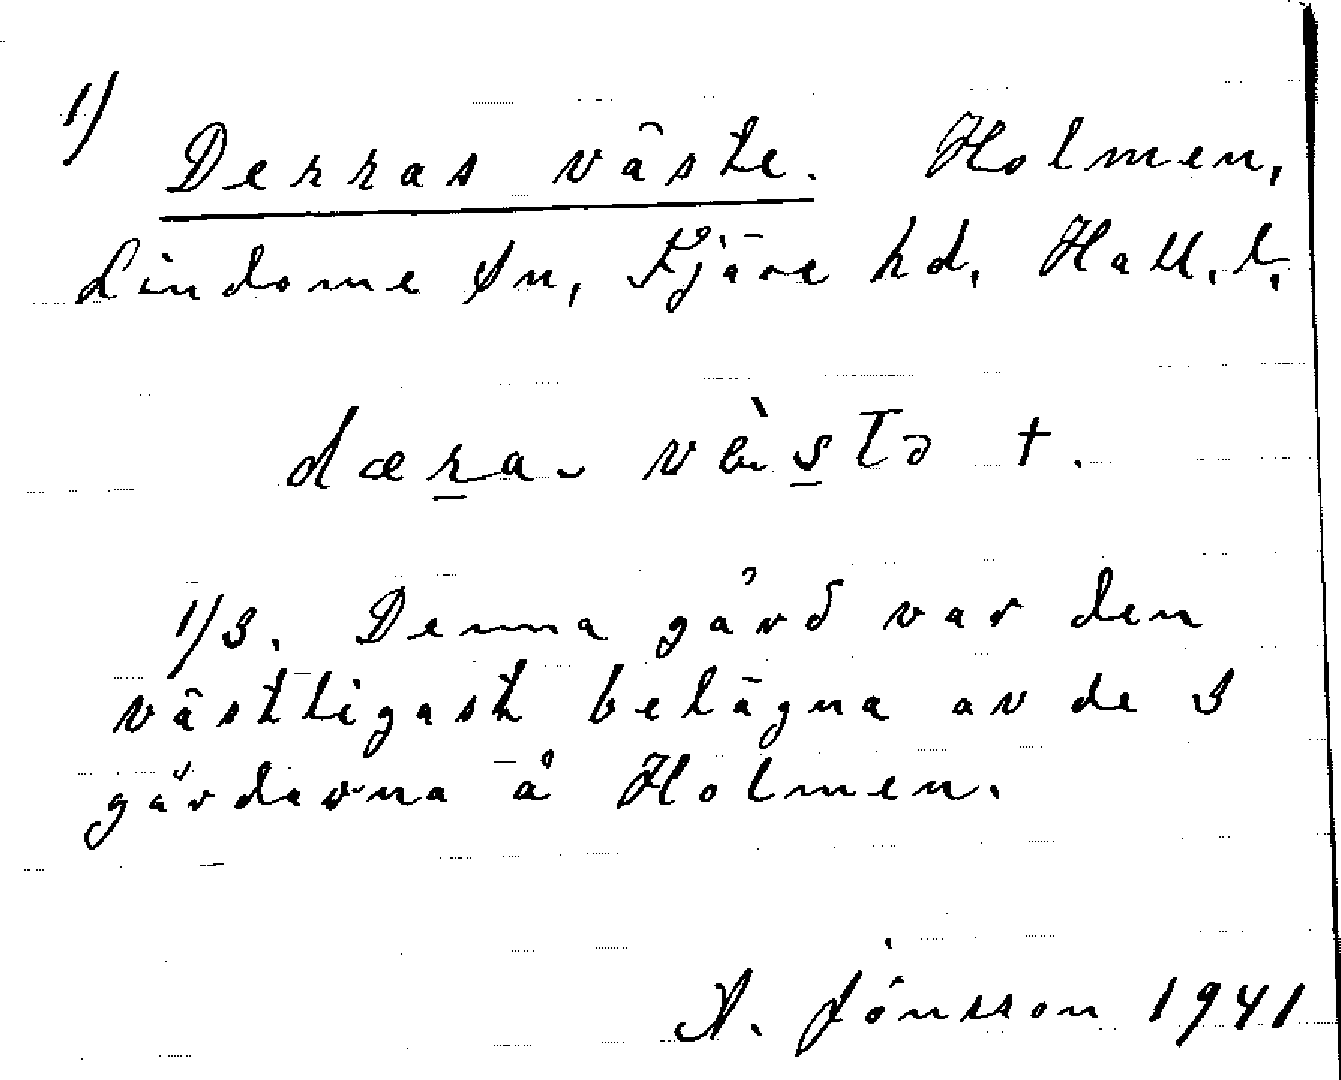 1)
Derras väste. Holmen,
Lindome sn, Fjäre hd, Hall. l.
dæra. vὲstə +.
1/3. Denna gård var den
västligast belägna av de 3
gårdarna å Holmen.
A. Jönsson 1941